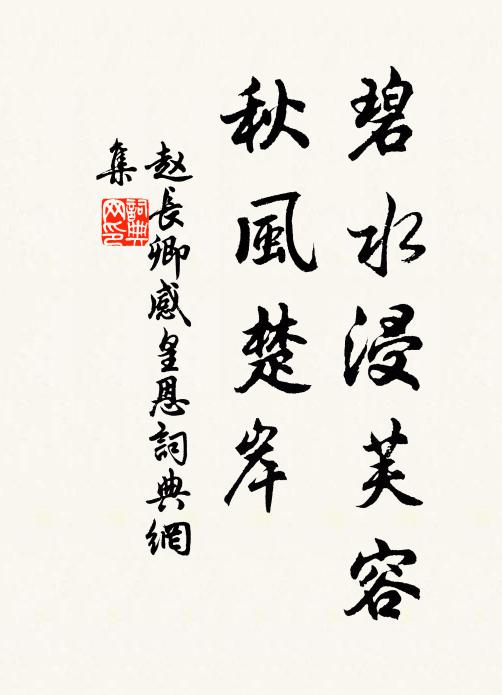 碧水浸芙容
秋風楚岸
赵長卿感皇恩詞典網
集
詞典
网印